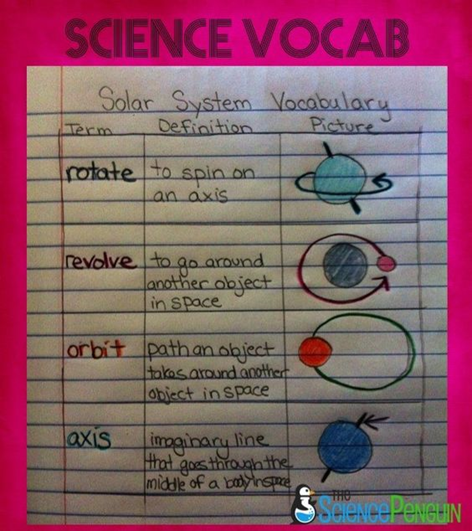 SCIENCE VOCAB
Solar System Vocabulary
Term Definition Picture
rotate to spin on
an axis
revolve to go around
another object
in space
orbit path an object
takes around another
object in space
axis imaginary line
that goes through the
middle of a body in space
THE
SCIENCEPENGUIN